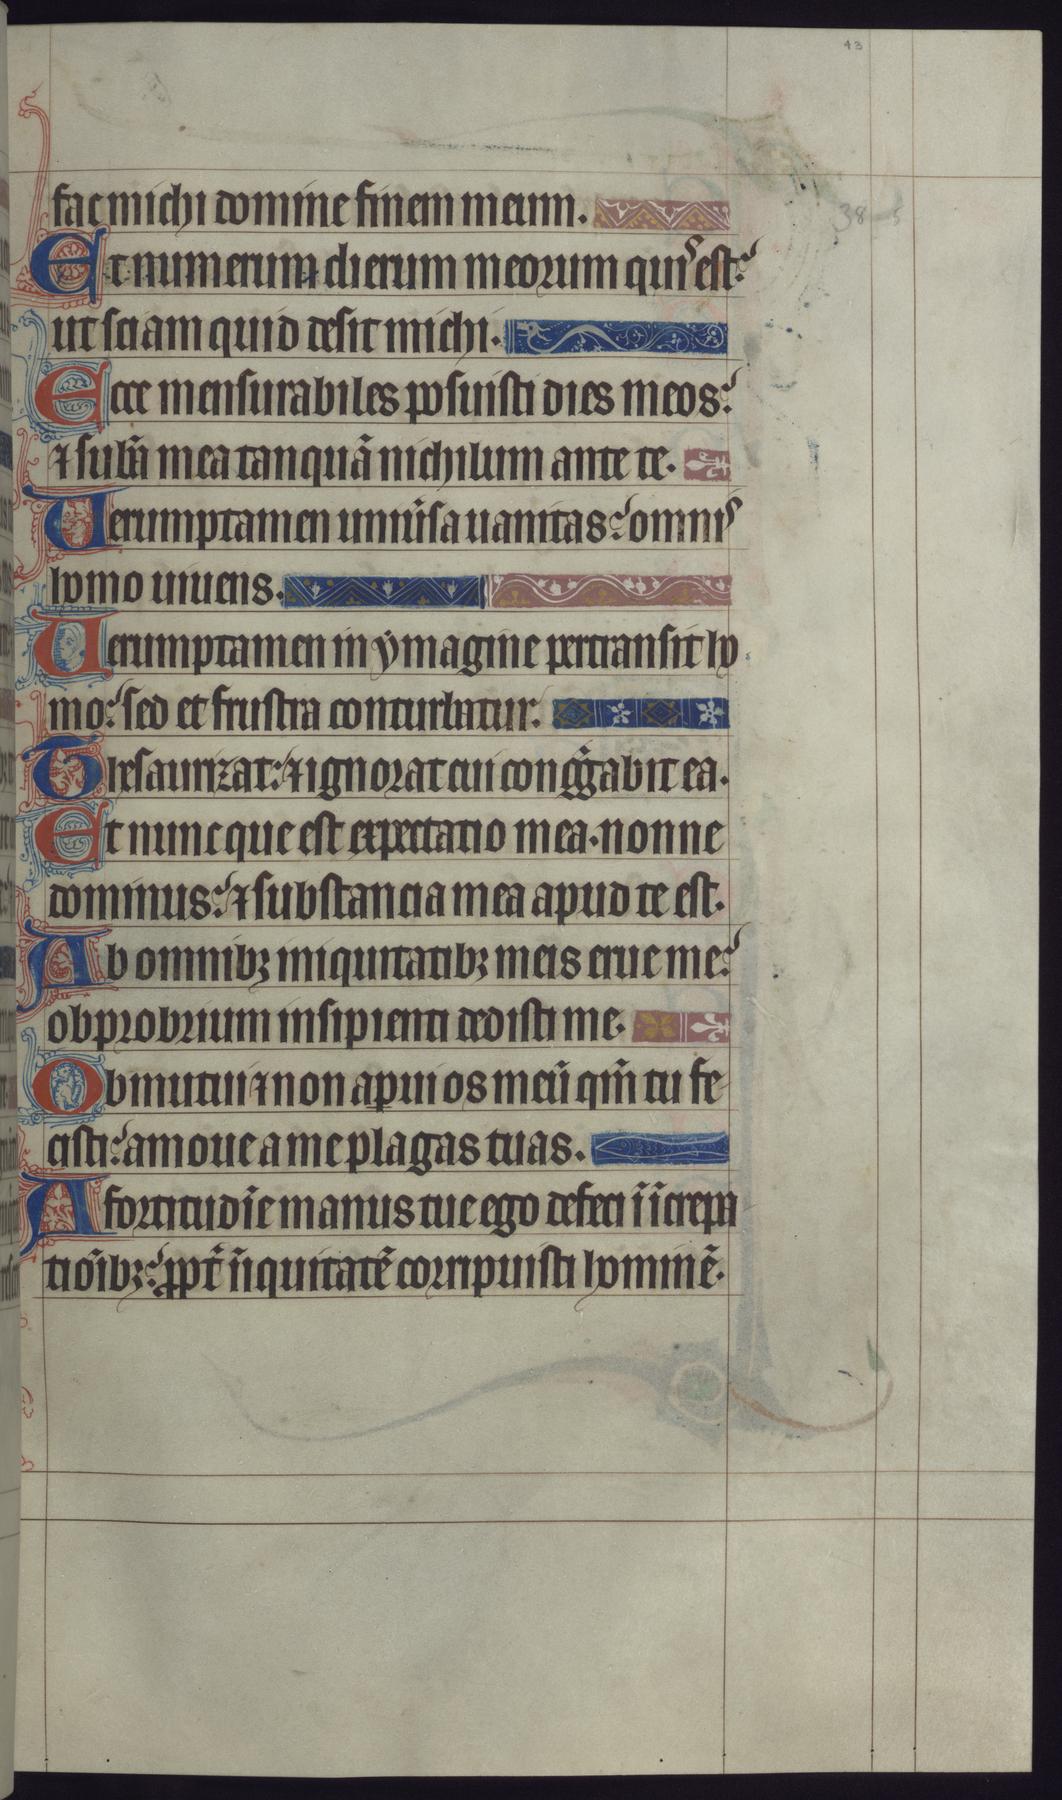 43
38-5
fac michi domine finem meum.
Et numerum dierum meorum quis est:
ut sciam quid desit michi.
Ecce mensurabiles posuisti dies meos:
⁊ subā mea tanquā nichilum ante te.
Uerumptamen uniu̅sa uanitas: omnis
homo uiuens.
Uerumptamen in ymagine pertransit ho
mo: sed et frustra conturbatur.
Thesaurizat: ⁊ ignorat cui congͣgabit ea.
Et nunc que est expectatio mea. nonne
dominus: ⁊ substancia mea apud te est.
Ab omnibꝫ iniquitatibꝫ meis erue me:
obprobrium insipienti dedisti me.
Obmutui ⁊ non apui os meū qm̄ tu fe
cisti: amoue a me plagas tuas.
A fortitudīe manus tue ego defeci ī īcrepa
tiōibꝫ: ꝓpt̄ īiquitatē corripuisti hominē.